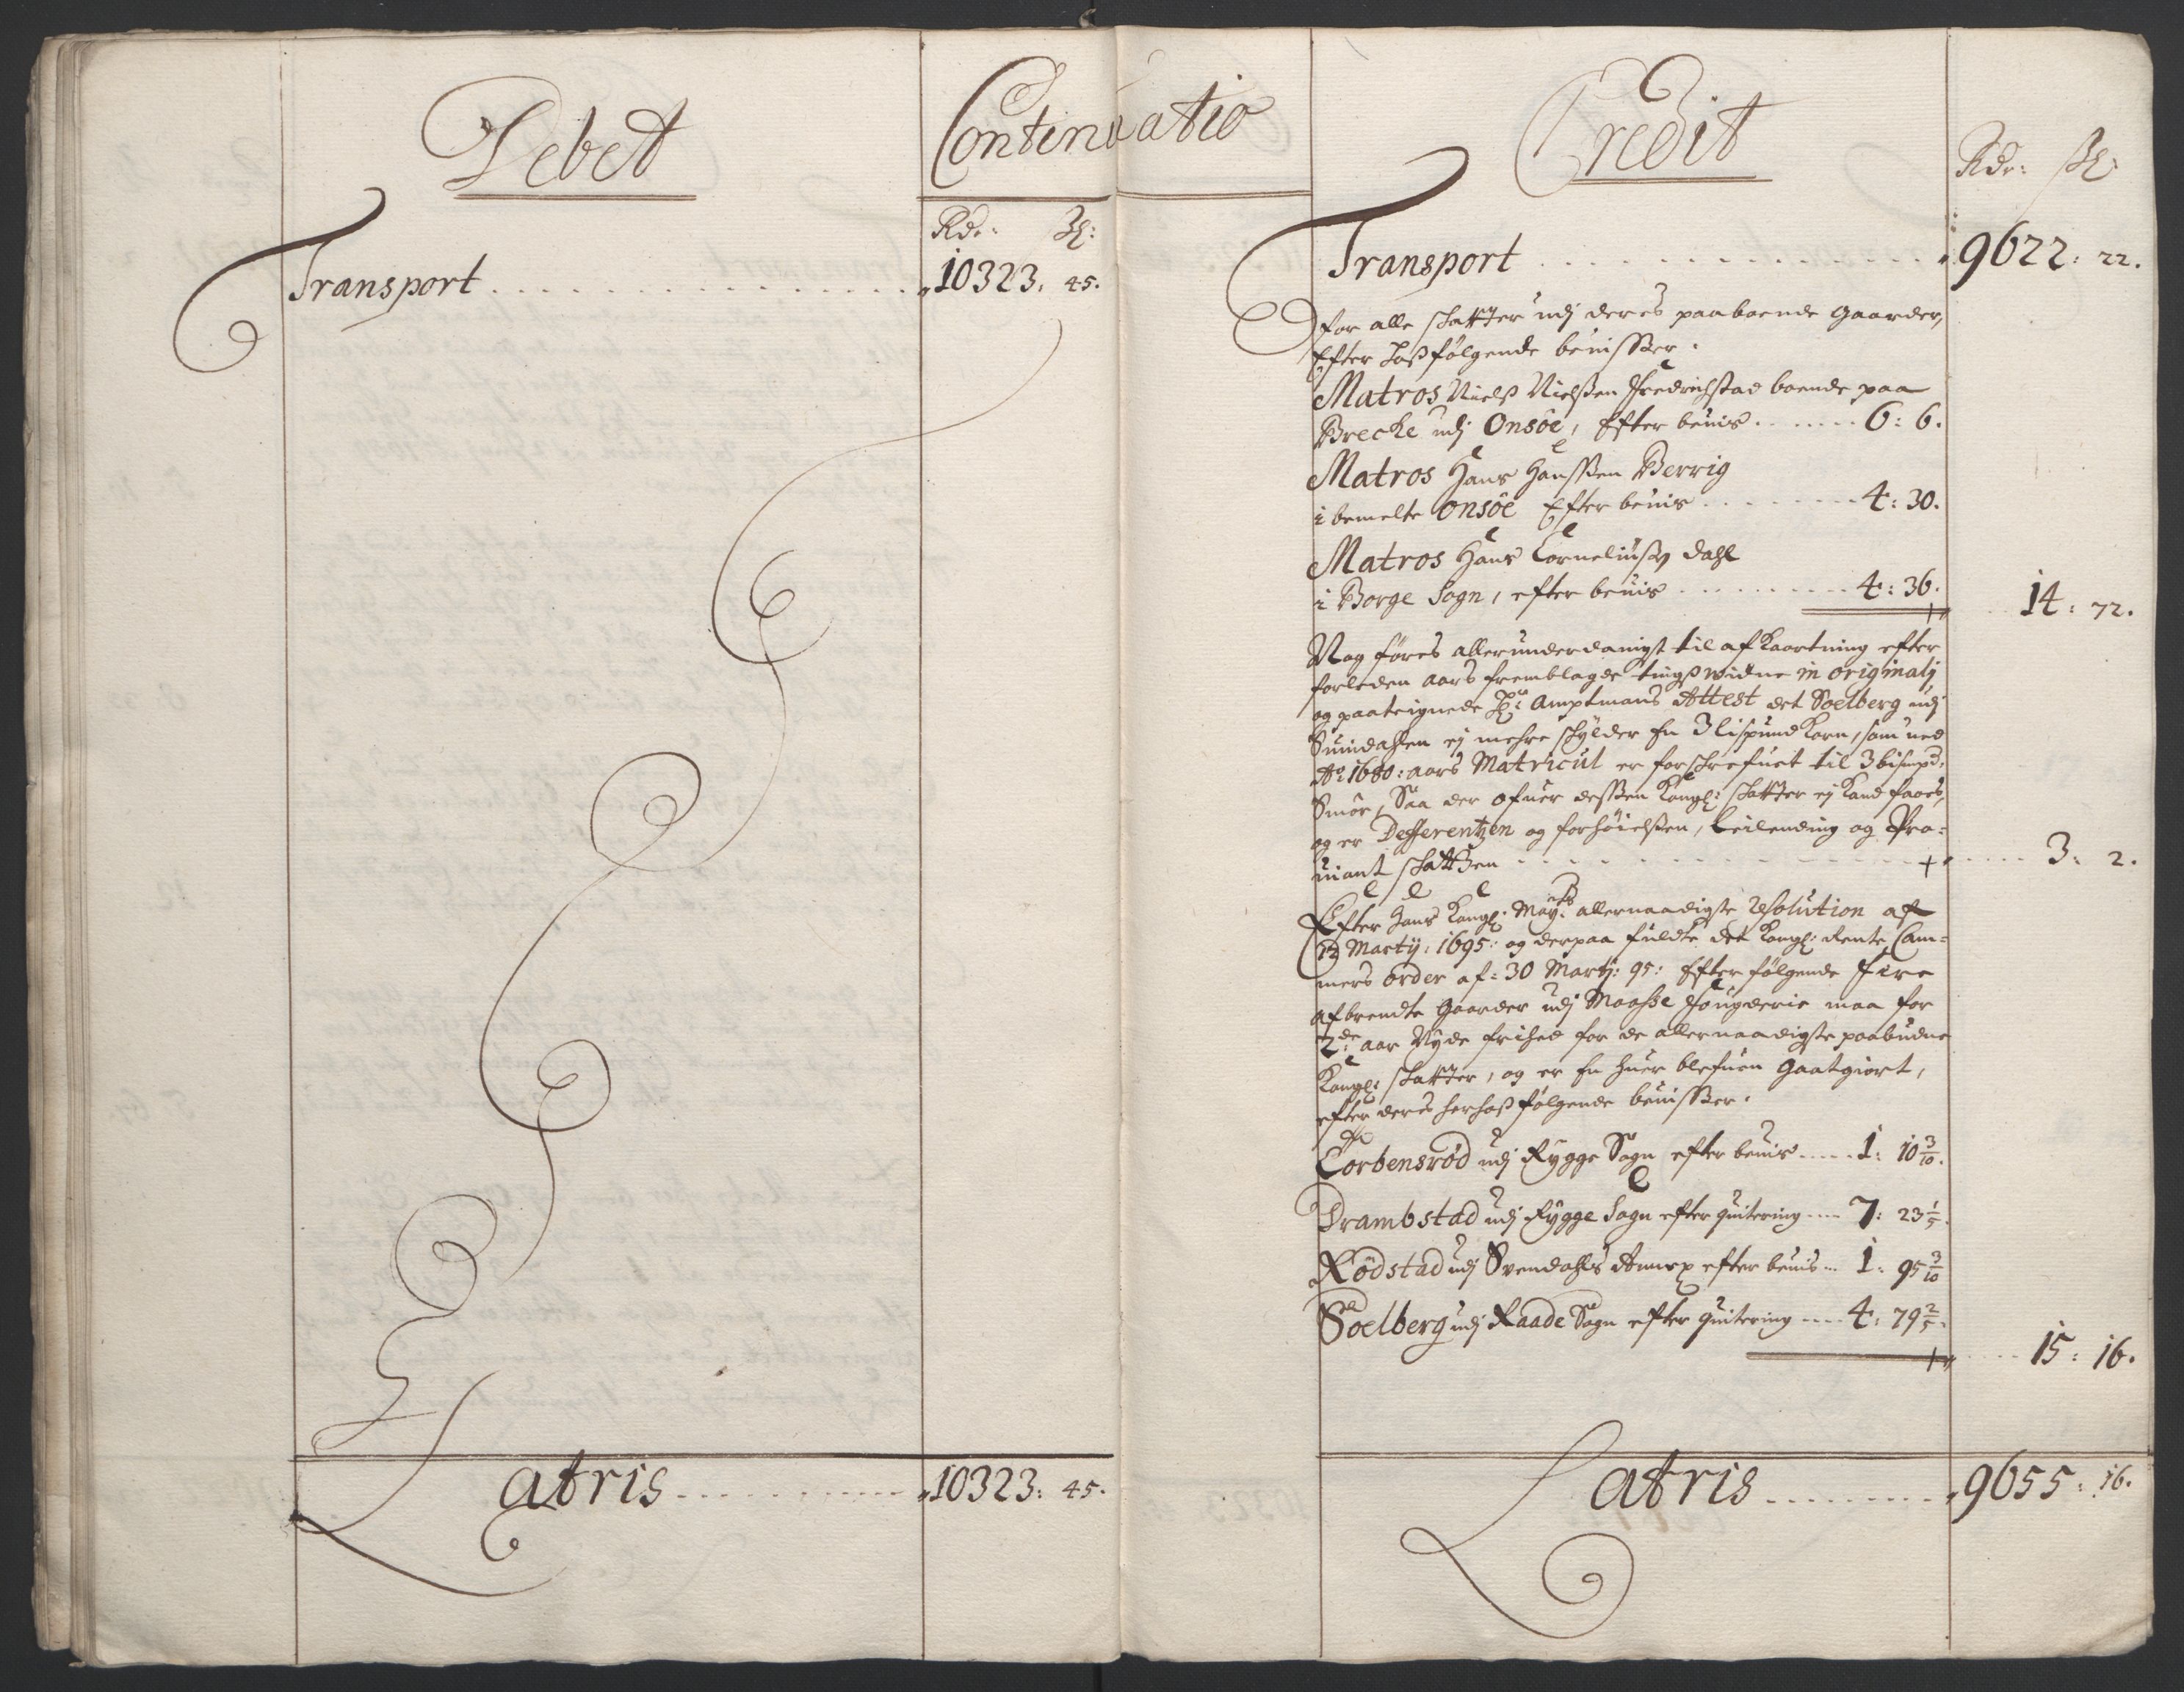 Debet
Continuatio
Rdr: ẞ:
Transport . . . . . . . . . . . . . . . 10323. 45.
Latris . . . . . . . . . . 10323: 45.
Credit
Rdr: ẞ:
Transport . . . . . . . . . . . . . . 9622: 22.
for alle skatter udj deres paaboende gaarder,
Efter hoßfølgende beuisser.
Matros Nielß Nielßen Fredrichstad boende paa
Brecke udj Onsöe, Efter beuis . . . . . . 6: 6.
Matros Hans Hanssen Berrig
i bemelte Onsöe Efter beuis . . . . . . . 4: 30.
Matros Hans Corneliusen dahl
i Borge Sogn, efter beuis . . . . . . . . . 4: 36.
14: 72.
Nog føres allerunderdanigst til afkaortning efter
forleden aars fremblagde tingßwidne in originalj
og paateignede Hr: Amptmans Attest det Soelberg udj
Suindahlen ej mehre skylder en 3 lispund Korn, som ued
Ao: 1680: aars Matricul er forschrefuet til 3 bismpd:
Smör, Saa der ofuer dessen Kongl: skatter ej kand faaes,
og er Defferentzen og forhöielsen, Leilending og Pro-
uiant skatten . . . . . . . . . . . . . . . . 3: 2.
Efter Hans Kongl: May:ts allernaadigste Resolution af
12 Martij: 1695: og derpaa fuldte det Kongl: Rente Cam-
mers order af: 30 Martij: 95: Efterfølgende Fire
afbrendte gaarder udj Moosse Fougderie maa for
2de: aar Nyde frihed for de allernaadigste paabudne
Kongl: skatter, og er en huer blefuen gaatgiort,
efter deres herhoß følgende beuisser.
Torbensrød udj Rygge Sogn efter beuis . . . . . 1: 10 3/10.
Drambstad udj Rygge Sogn efter quitering . . . . 7: 23 1/5.
Rödstad udj Svendahls Annex efter beuis . . . 1: 95 3/10
Soelberg udj Raade Sogn efter quitering . . . . 4: 79 2/5.
15: 16.
Latris . . . . . . . . . 9655: 16.